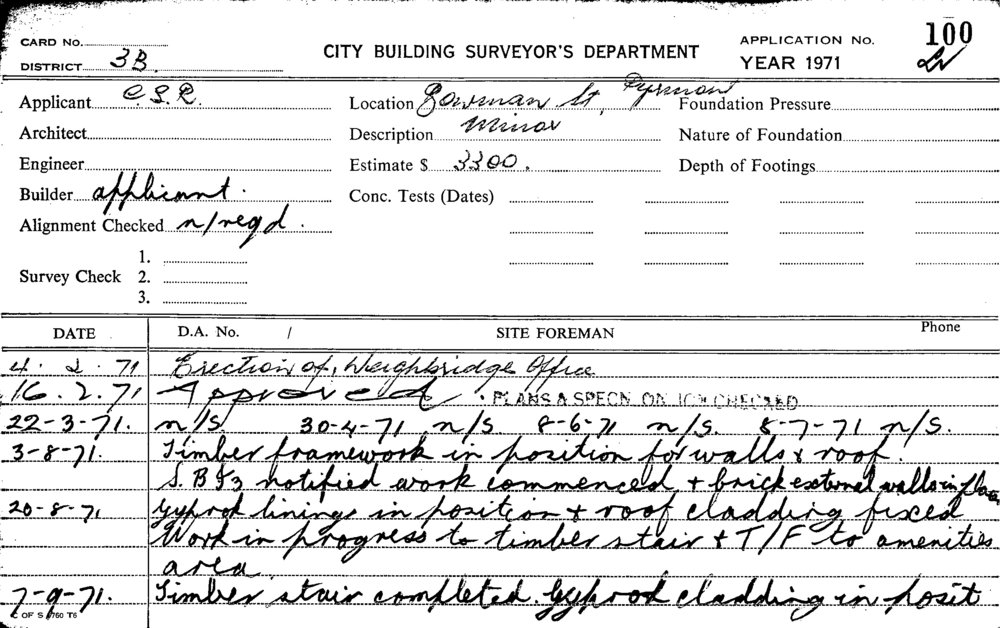 CARD No.
DISTRICT 3B.
CITY BUILDING SURVEYOR'S DEPARTMENT
APPLICATION No. 100
YEAR 1971
Applicant C.S.R.
Location Bowman St, Pyrmont
Foundation Pressure
Architect
Description Minor
Nature of Foundation
Engineer
Estimate $ 3300.
Depth of Footings
Builder applicant.
Conc. Tests (Dates)
Alignment Checked n/reqd.
Survey Check 1.
2.
3.
DATE D.A. No. / SITE FOREMAN Phone
4. 2. 71 Erection of, Weighbridge Office
16. 2. 71 Approved. PLANS & SPECN. ON CHECKED
22-3-71. n/S. 30-4-71 n/S. 8-6-71 n/S. 8-7-71 n/S.
3-8-71. Timber framework in position for walls & roof.
notified work commenced + brick external walls in place
20-8-71 Gyprock linings in position & roof cladding fixed
Work in progress to timber stair + T/F to amenities
area.
7-9-71. Timber stair completed. Gyprock cladding in posit
C OF S 760 T6